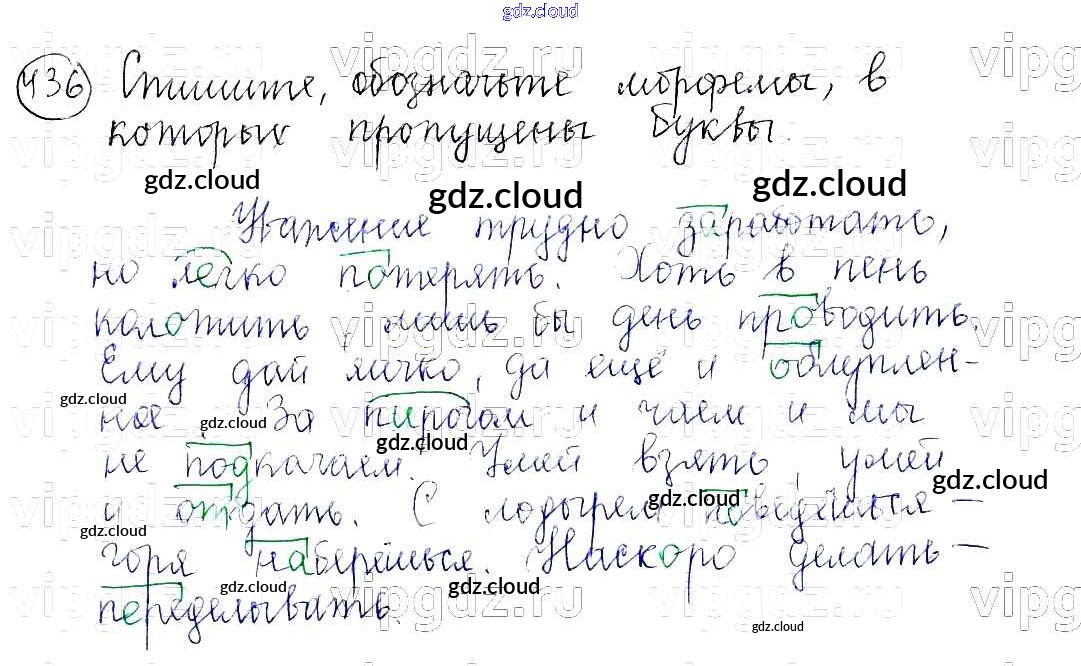 gdz.cloud
436 Спишите, обозначьте морфемы, в
которых пропущены буквы.
gdz.cloud gdz.cloud gdz.cloud
Уважение трудно заработать,
но легко потерять. Хоть в пень
колотить, лишь бы день проводить.
Ему дай яичко, да ещё и облуплен-
ное. За пирогом и чаем и мы
не подкачаем. Умей взять, умей
и отдать. С лодырем поведёшься –
горя наберёшься. Наскоро делать –
переделывать.
gdz.cloud
gdz.cloud
gdz.cloud
gdz.cloud
gdz.cloud
gdz.cloud
gdz.cloud
gdz.cloud
gdz.cloud
gdz.cloud
vipgdz.ru